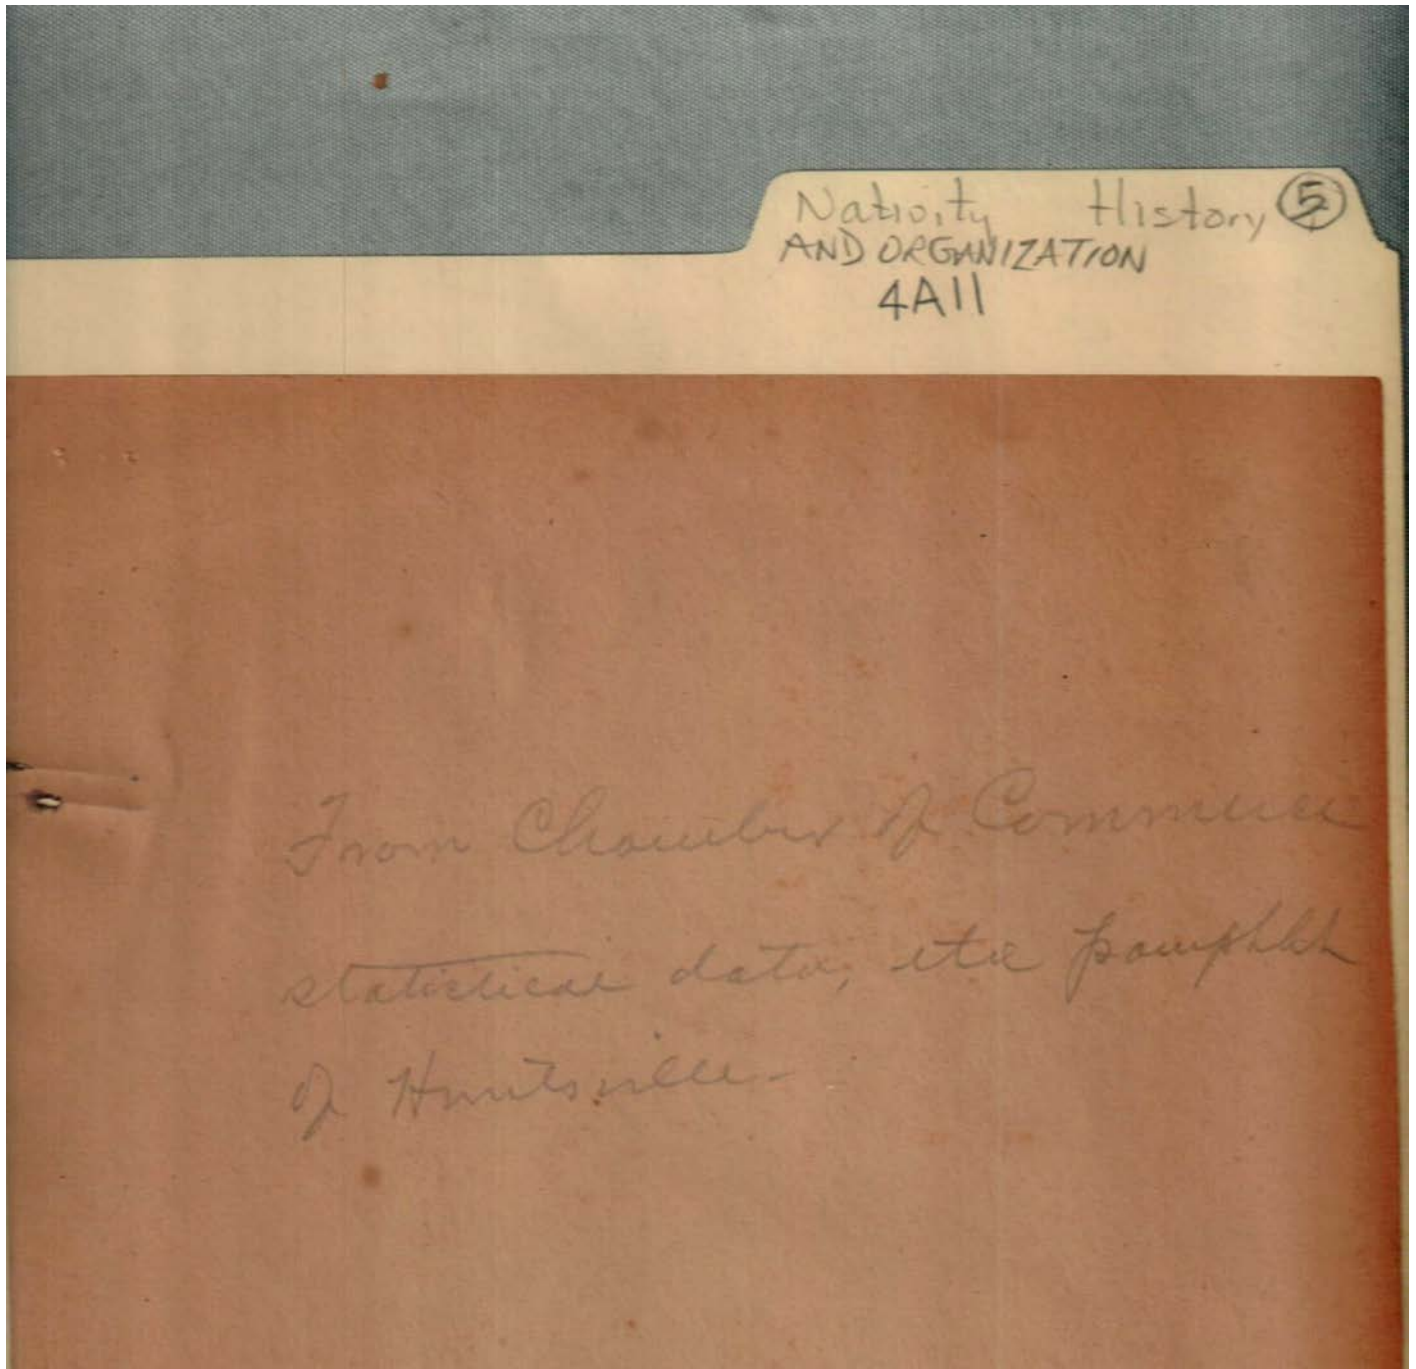 Nativity History 5
AND ORGANIZATION
4A11
From Chamber of Commerce
statistical data, etc pamphlet
of Huntsville-